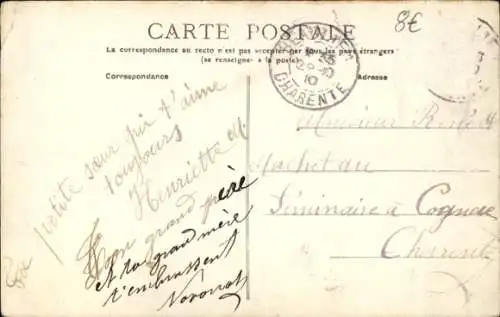 CARTE POSTALE
8€
La correspondance au recto n'est pas acceptée par tous les pays étrangers
(se renseigner à la poste)
Correspondance
Adresse
CHARENTE
10
Monsieur
Machet au
Séminaire à Cognac
Charente
petite sœur qui t'aime
toujours
Henriette
Ton grand père
et ta grand mère
t'embrassent